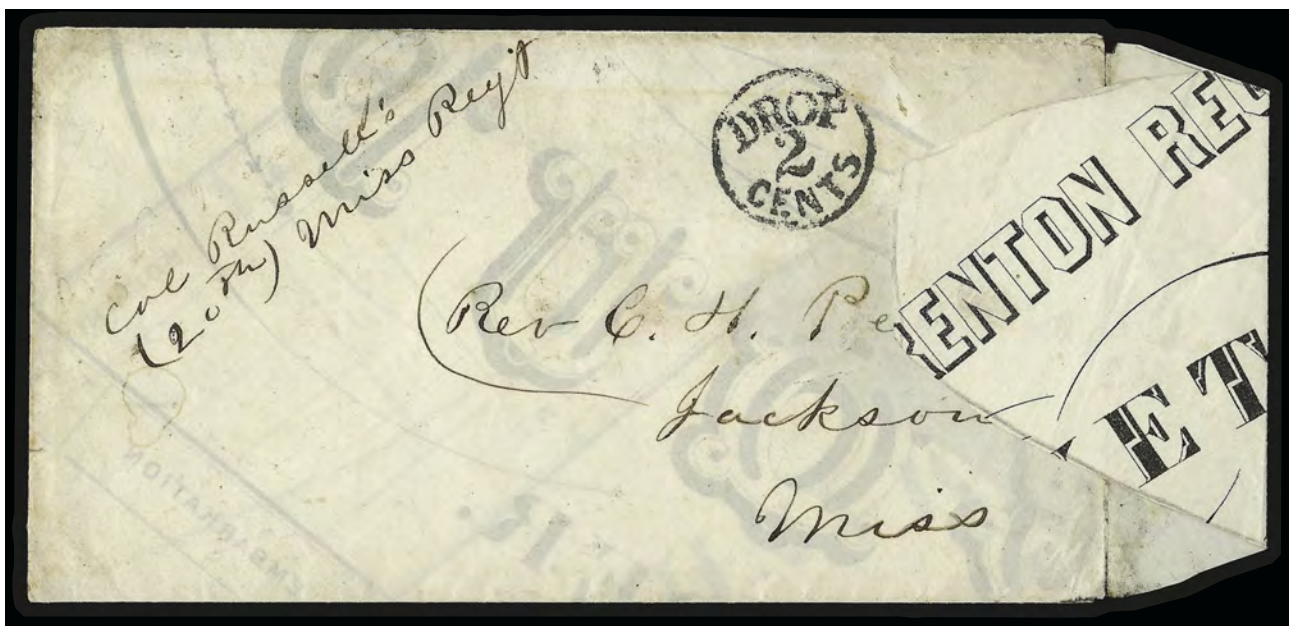 Col Russell's
(20th) Miss Regt
DROP
2
CENTS
Rev C. H. Pe
Jackson
Miss
RENTON REG
ET